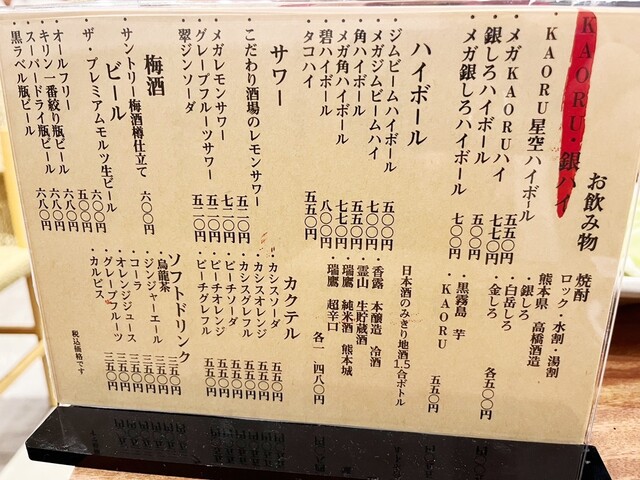 お飲み物
KAORU・銀ハイ
KAORU星空ハイボール
メガKAORUハイ 五五〇円
銀しろハイボール 七七〇円
メガ銀しろハイボール 五〇〇円
七〇〇円
ハイボール
ジムビームハイボール 五〇〇円
メガジムビームハイ 七〇〇円
角ハイボール 五五〇円
メガ角ハイボール 七七〇円
碧ハイボール 八〇〇円
タコハイ 五五〇円
サワー
こだわり酒場のレモンサワー 五二〇円
メガレモンサワー 七二〇円
グレープフルーツサワー 五二〇円
翠ジンソーダ 五二〇円
梅酒
サントリー梅酒樽仕立て 六〇〇円
ビール
ザ・プレミアムモルツ生ビール 六〇〇円
オールフリー 五〇〇円
キリン一番搾り瓶ビール 六八〇円
スーパードライ瓶ビール 六八〇円
黒ラベル瓶ビール 六八〇円
焼酎
ロック・水割・湯割
熊本県 高橋酒造
・銀しろ
・白岳しろ
・金しろ 各五〇〇円
・黒霧島 芋
・KAORU 五五〇円
日本酒のみきり地酒1.5合ボトル
・香露 本醸造 冷酒
・霊山 生貯蔵酒
・瑞鷹 純米酒 熊本城
・瑞鷹 超辛口 各一、四八〇円
カクテル
・カシスソーダ 五五〇円
・カシスオレンジ 五五〇円
・カシスグレフル 五五〇円
・ピーチソーダ 五五〇円
・ピーチオレンジ 五五〇円
・ピーチグレフル 五五〇円
ソフトドリンク
・烏龍茶 三五〇円
・ジンジャーエール 三五〇円
・コーラ 三五〇円
・オレンジジュース 三五〇円
・グレープフルーツ 三五〇円
・カルピス 三五〇円
税込価格です